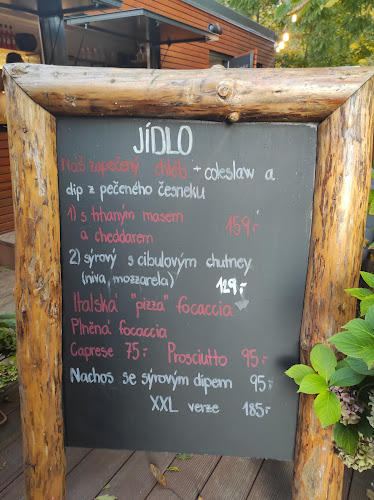 JÍDLO
Náš zapečený chléb + coleslaw a
dip z pečeného česneku
1) s trhaným masem 159,-
a cheddarem
2) sýrový s cibulovým chutney
(niva, mozzarela) 129,-
Italská "pizza" focaccia
Plněná focaccia
Caprese 75,- Prosciutto 95,-
Nachos se sýrovým dipem 95,-
XXL verze 185,-